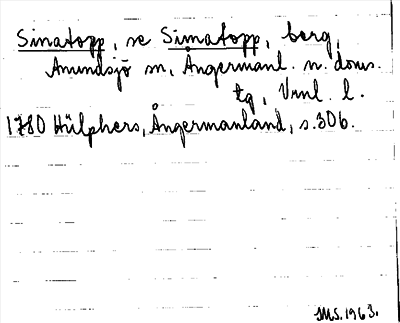 Sinatopp, se Simatopp, berg,
Anundsjö sn, Ångermanl. n. doms.
tg, Vnl. l.
1780 Hülphers, Ångermanland, s. 306.
IMS. 1963.